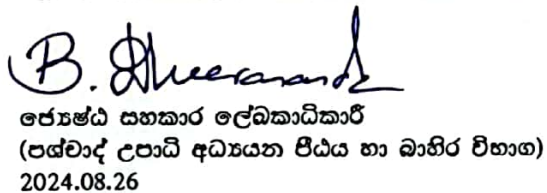 B. Dheerananda
ජ්‍යෙෂ්ඨ සහකාර ලේඛකාධිකාරී
(පශ්චාද් උපාධි අධ්‍යයන පීඨය හා බාහිර විභාග)
2024.08.26